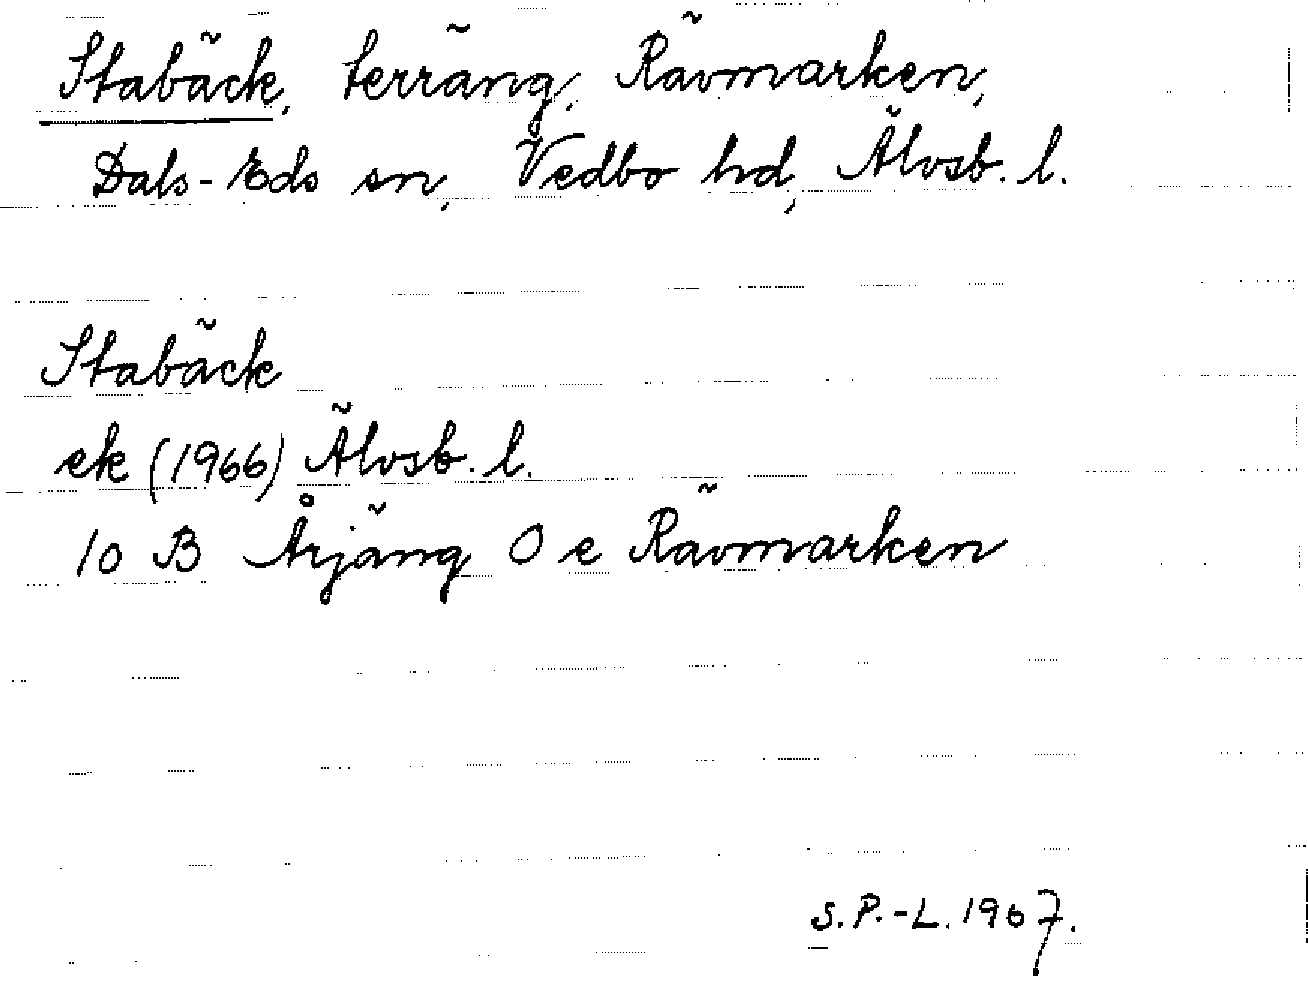 Stabäck, terräng, Rävmarken,
Dals-Eds sn, Vedbo hd, Älvsb. l.
Stabäck
ek (1966) Älvsb. l.
10 B Årjäng O e Rävmarken
S.P.-L. 1967.